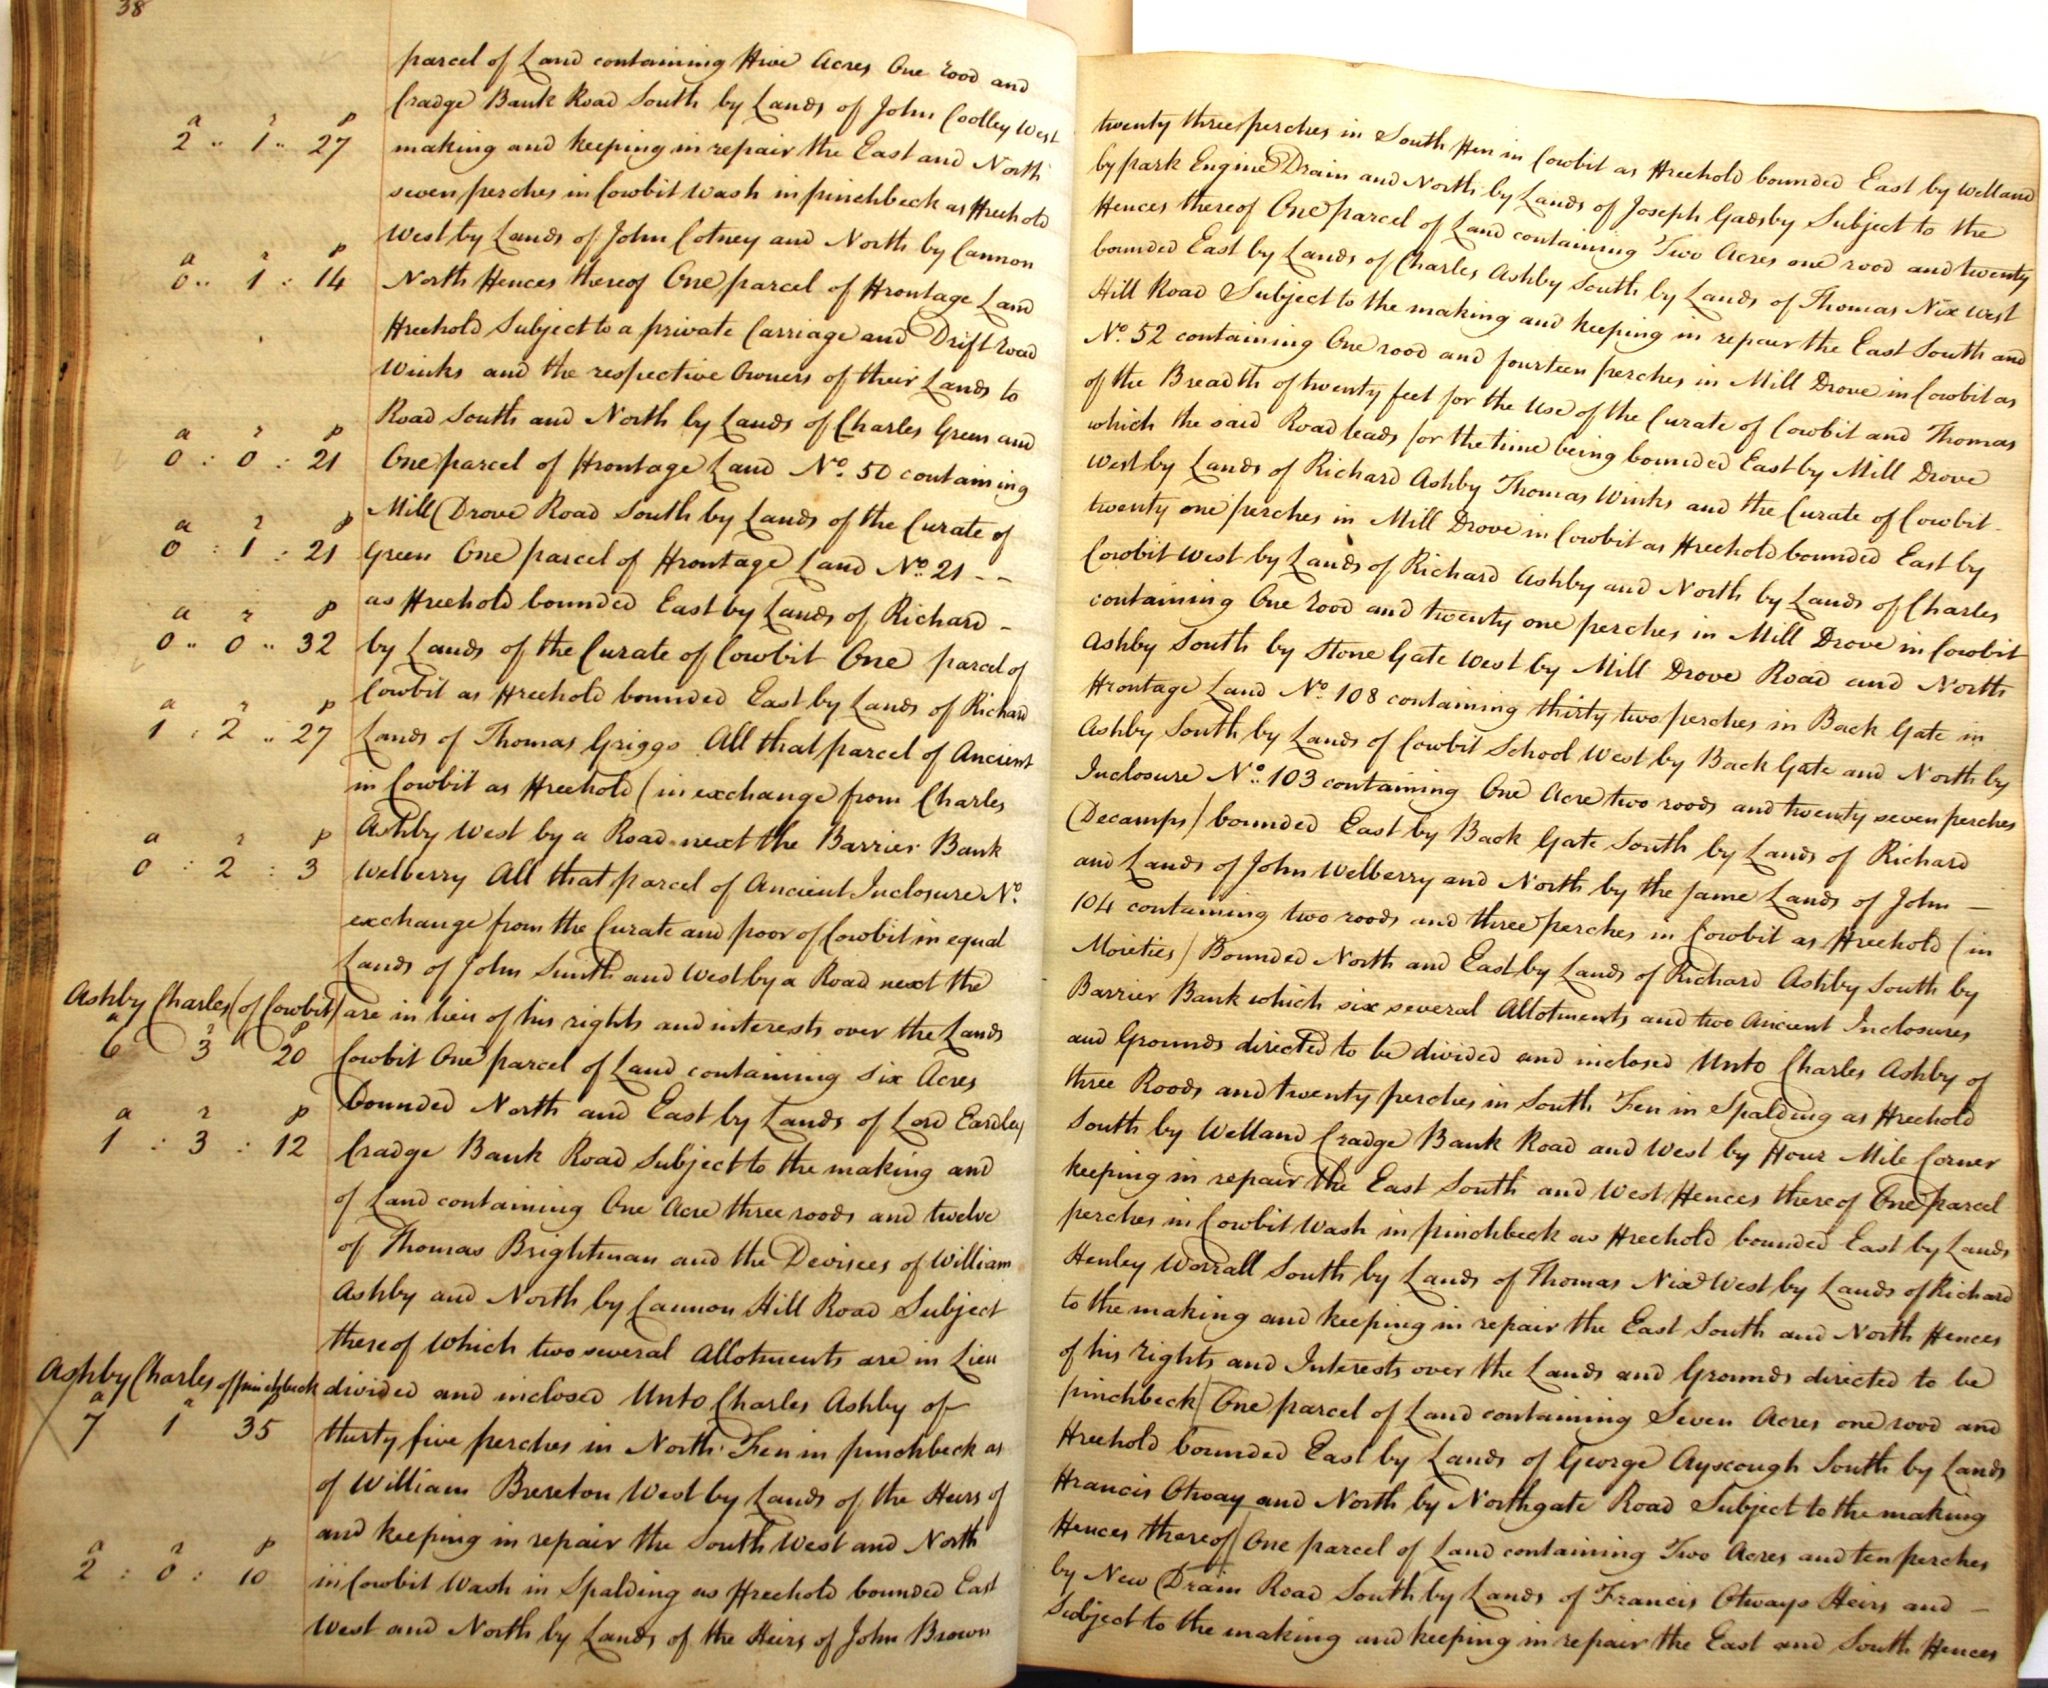 38
parcel of Land containing Five Acres One rood and twenty three perches in South Fen in Cowbit as Freehold bounded East by Welland
Cradge Bank Road South by Lands of John Coolley West by park Engine Drain and North by Lands of Joseph Gadsby Subject to the
a r p
2 .. 1 .. 27 making and keeping in repair the East and North Fences thereof One parcel of Land containing Two Acres one rood and twenty
seven perches in Cowbit Wash in pinchbeck as Freehold bounded East by Lands of Charles Ashby South by Lands of Thomas Nix West
West by Lands of John Cotney and North by Cannon Hill Road Subject to the making and keeping in repair the East South and
a r p
0 .. 1 : 14 North Fences thereof One parcel of Frontage Land No. 52 containing One rood and fourteen perches in Mill Drove in Cowbit as
Freehold Subject to a private Carriage and Drift road of the Breadth of twenty feet for the Use of the Curate of Cowbit and Thomas
Winks and the respective Owners of their Lands to which the said Road leads for the time being bounded East by Mill Drove
Road South and North by Lands of Charles Green and West by Lands of Richard Ashby Thomas Winks and the Curate of Cowbit
a r p
0 : 0 : 21 One parcel of Frontage Land No. 50 containing twenty one perches in Mill Drove in Cowbit as Freehold bounded East by
Mill Drove Road South by Lands of the Curate of Cowbit West by Lands of Richard Ashby and North by Lands of Charles
a r p
0 : 1 : 21 Green One parcel of Frontage Land No. 21 -- containing One rood and twenty one perches in Mill Drove in Cowbit
as Freehold bounded East by Lands of Richard - Ashby South by Stone Gate West by Mill Drove Road and North
a r p
0 .. 0 .. 32 by Lands of the Curate of Cowbit One parcel of Frontage Land No. 108 containing thirty two perches in Back Gate in
Cowbit as Freehold bounded East by Lands of Richard Ashby South by Lands of Cowbit School West by Back Gate and North by
a r p
1 : 2 .. 27 Lands of Thomas Griggs All that parcel of Ancient Inclosure No. 103 containing One Acre two roods and twenty seven perches
in Cowbit as Freehold (in exchange from Charles Decamps) bounded East by Back Gate South by Lands of Richard
Ashby West by a Road next the Barrier Bank and Lands of John Welberry and North by the same Lands of John -
a r p
0 : 2 : 3 Welberry All that parcel of Ancient Inclosure No. 104 containing two roods and three perches in Cowbit as Freehold (in
exchange from the Curate and poor of Cowbit in equal Moieties) Bounded North and East by Lands of Richard Ashby South by
Lands of John Smith and West by a Road next the Barrier Bank which six several Allotments and two Ancient Inclosures
Ashby Charles (of Cowbit) are in lieu of his rights and interests over the Lands and Grounds directed to be divided and inclosed Unto Charles Ashby of
a r p
6 3 20 Cowbit One parcel of Land containing six Acres three Roods and twenty perches in South Fen in Spalding as Freehold
bounded North and East by Lands of Lord Eardley South by Welland Cradge Bank Road and West by Four Mile Corner
a r p
1 : 3 : 12 Cradge Bank Road Subject to the making and keeping in repair the East South and West Fences thereof One parcel
of Land containing One Acre three roods and twelve perches in Cowbit Wash in pinchbeck as Freehold bounded East by Lands
of Thomas Brightman and the Devisees of William Henley Worrall South by Lands of Thomas Nix West by Lands of Richard
Ashby and North by Cannon Hill Road Subject to the making and keeping in repair the East South and North Fences
thereof Which two several Allotments are in Lieu of his rights and Interests over the Lands and Grounds directed to be
Ashby Charles of pinchbeck divided and inclosed Unto Charles Ashby of pinchbeck One parcel of Land containing Seven Acres one rood and
a r p
7 1 35 thirty five perches in North Fen in pinchbeck as Freehold bounded East by Lands of George Ayscough South by Lands
of William Brereton West by Lands of the Heirs of Francis Otway and North by Northgate Road Subject to the making
and keeping in repair the South West and North Fences thereof One parcel of Land containing Two Acres and ten perches
a r p
2 : 0 : 10 in Cowbit Wash in Spalding as Freehold bounded East by New Drain Road South by Lands of Francis Otways Heirs and -
West and North by Lands of the Heirs of John Brown Subject to the making and keeping in repair the East and South Fences